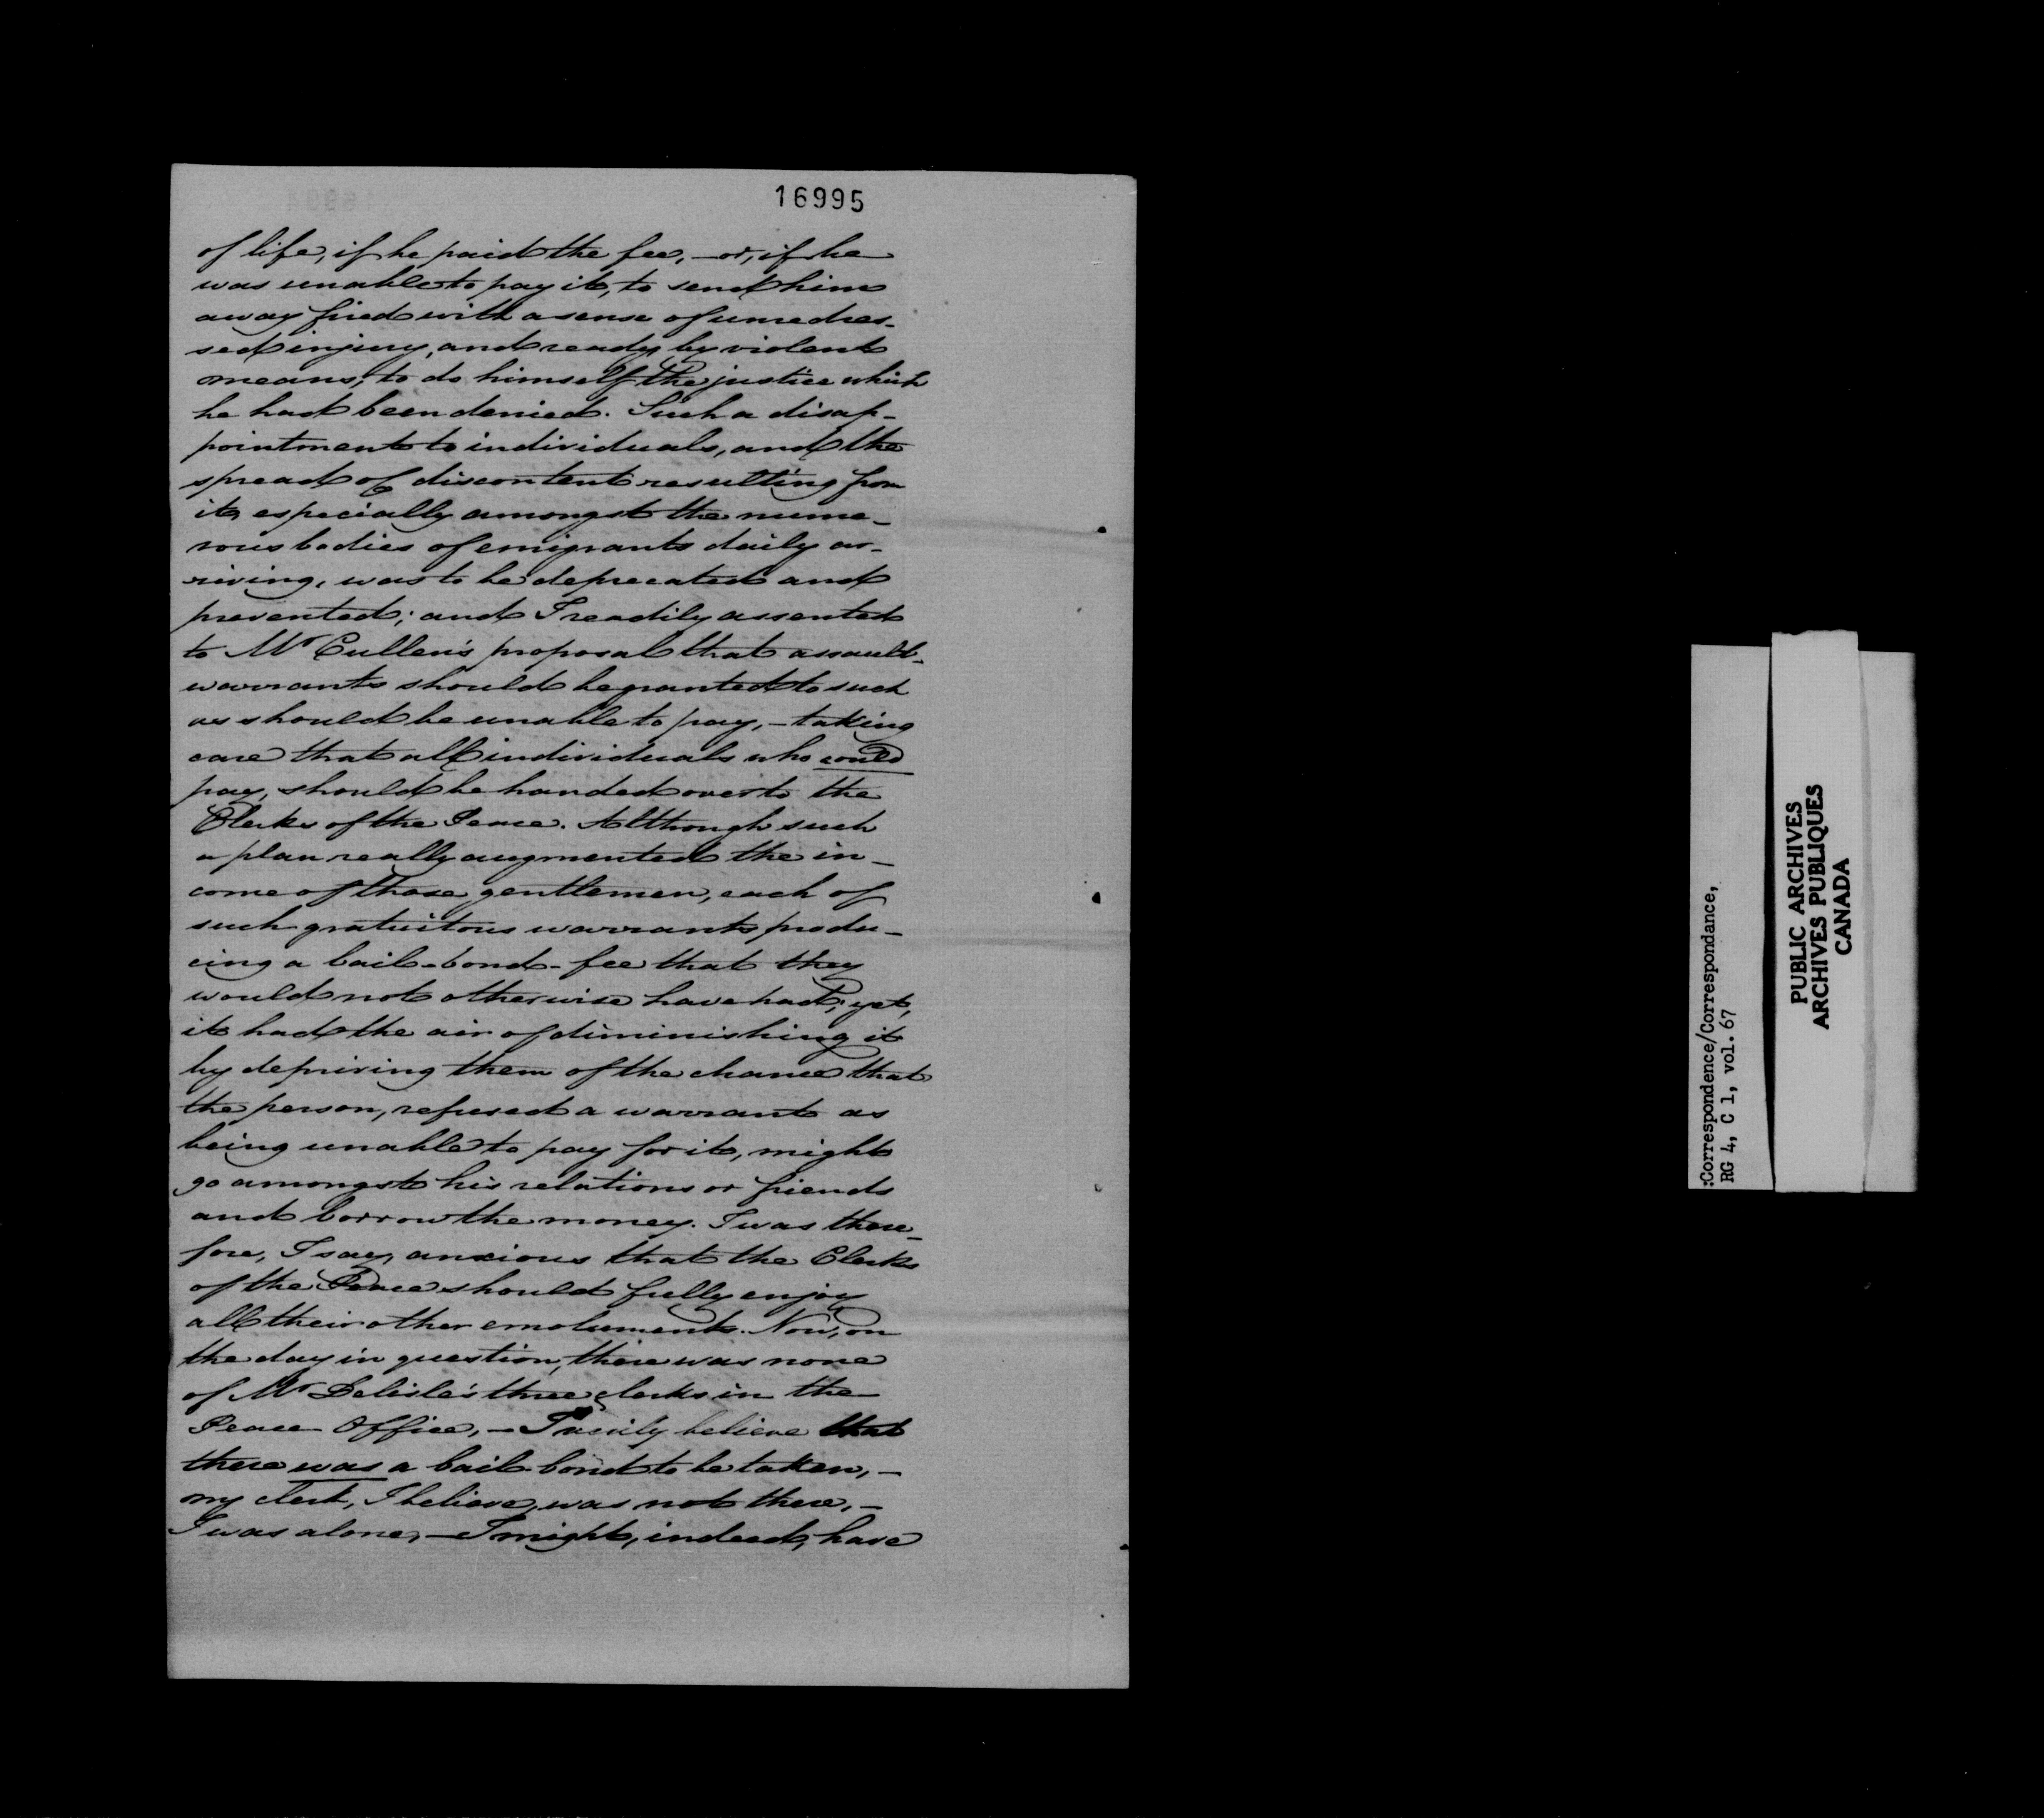 16995
of life, if he paid the fee, – or, if he
was unable to pay it, to send him
away fired with a sense of unredres-
sed injury, and ready, by violent
means, to do himself the justice which
he had been denied. Such a disap-
pointment to individuals, and the
spread of discontent resulting from
it, especially amongst the nume-
rous bodies of emigrants daily ar-
riving, was to be deprecated and
prevented; and I readily assented
to Mr Cullen's proposal that assault-
warrants should be granted to such
as should be unable to pay, – taking
care that all individuals who could
pay, should be handed over to the
Clerks of the Peace. Although such
a plan really augmented the in-
come of those gentlemen, each of
such gratuitous warrants produ-
cing a bail-bond-fee that they
would not otherwise have had; yet,
it had the air of diminishing it
by depriving them of the chance that
the person, refused a warrant as
being unable to pay for it, might
go amongst his relations or friends
and borrow the money. I was there-
fore, I say, anxious that the Clerks
of the Peace should fully enjoy
all their other emoluments. Now, on
the day in question, there was none
of Mr Delisle's three clerks in the
Peace Office, – I verily believe that
there was a bail-bond to be taken, –
my clerk, I believe, was not there, –
I was alone, – I might, indeed, have
:Correspondence/Correspondance,
RG 4, C 1, vol. 67
PUBLIC ARCHIVES
ARCHIVES PUBLIQUES
CANADA